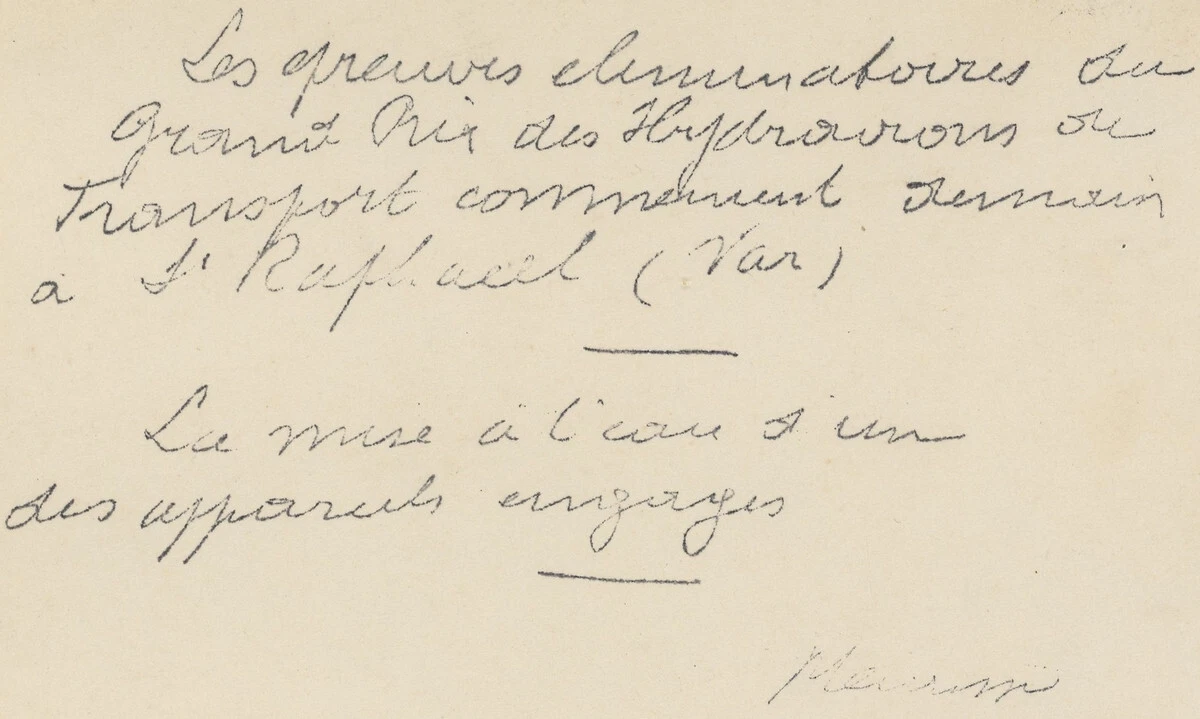 Les epreuves eliminatoires du
Grand Prix des Hydravions de
Transport commencent demain
à St Raphael (Var)
La mise à l'eau d'un
des appareils engages
Meurisse